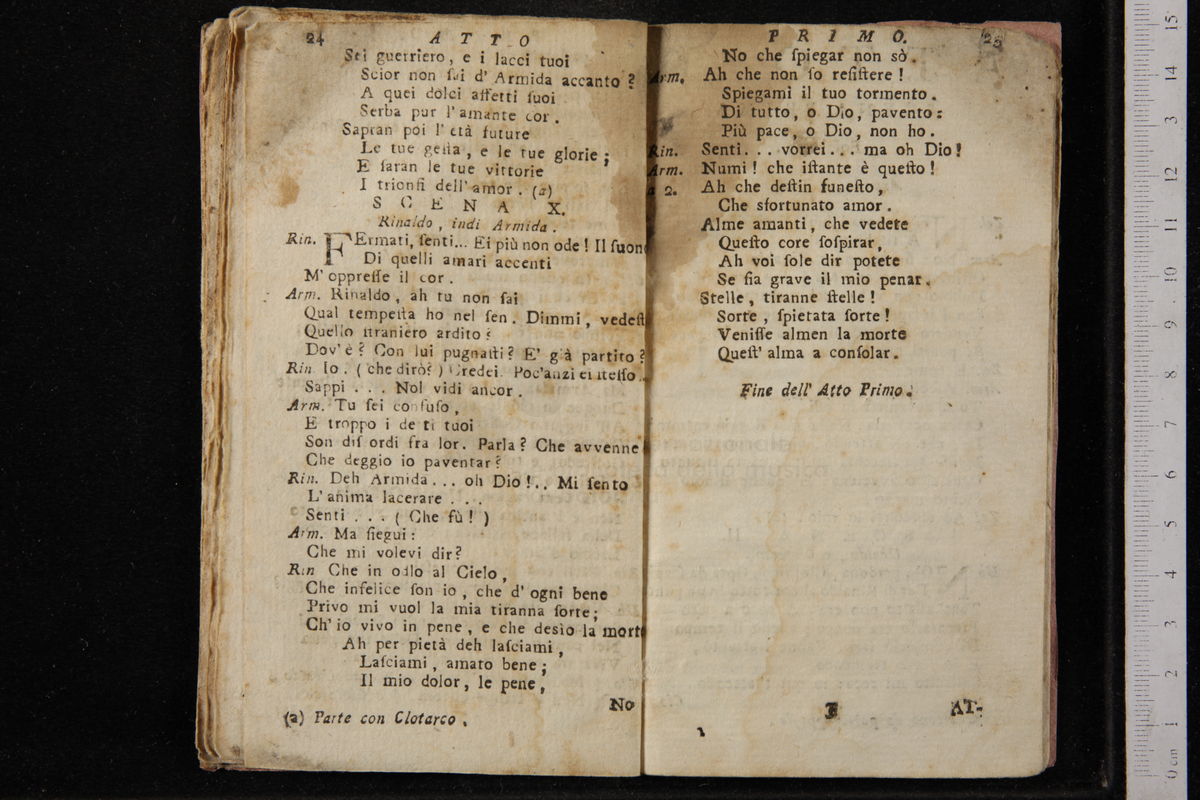 24 ATTO
Sei guerriero, e i lacci tuoi
Scior non ſai d' Armida accanto ?
A quei dolci affetti ſuoi
Serba pur l'amante cor.
Sapran poi l'età future
Le tue geſta, e le tue glorie;
E ſaran le tue vittorie
I trionfi dell'amor. (a)
SCENA X.
Rinaldo, indi Armida.
Rin. FErmati, ſenti... Ei più non ode! Il ſuono
Di quelli amari accenti
M' oppreſſe il cor.
Arm. Rinaldo, ah tu non ſai
Qual tempeſta ho nel ſen. Dimmi, vedeſti
Quello ſtraniero ardito?
Dov'è? Con lui pugnaſti? E' già partito?
Rin. Io. (che dirò?) Credei. Poc'anzi ei ſteſſo..
Sappi... Nol vidi ancor.
Arm. Tu ſei confuſo,
E troppo i de ti tuoi
Son diſ ordi fra lor. Parla? Che avvenne
Che deggio io paventar?
Rin. Deh Armida... oh Dio!.. Mi ſento
L'anima lacerare...
Senti... (Che fù!)
Arm. Ma ſiegui:
Che mi volevi dir?
Rin Che in odio al Cielo,
Che infelice ſon io, che d'ogni bene
Privo mi vuol la mia tiranna ſorte;
Ch'io vivo in pene, e che desìo la morte
Ah per pietà deh laſciami,
Laſciami, amato bene;
Il mio dolor, le pene,
No
(a) Parte con Clotarco.
PRIMO. 25
No che ſpiegar non sò.
Arm. Ah che non ſo reſiſtere!
Spiegami il tuo tormento.
Di tutto, o Dio, pavento:
Più pace, o Dio, non ho.
Rin. Senti... vorrei... ma oh Dio!
Arm. Numi! che iſtante è queſto!
a 2. Ah che deſtin funeſto,
Che sfortunato amor.
Alme amanti, che vedete
Queſto core ſoſpirar,
Ah voi ſole dir potete
Se ſia grave il mio penar.
Stelle, tiranne ſtelle!
Sorte, ſpietata ſorte!
Veniſſe almen la morte
Queſt'alma a conſolar.
Fine dell' Atto Primo.
AT-
0 cm 1 2 3 4 5 6 7 8 9 10 11 12 13 14 15